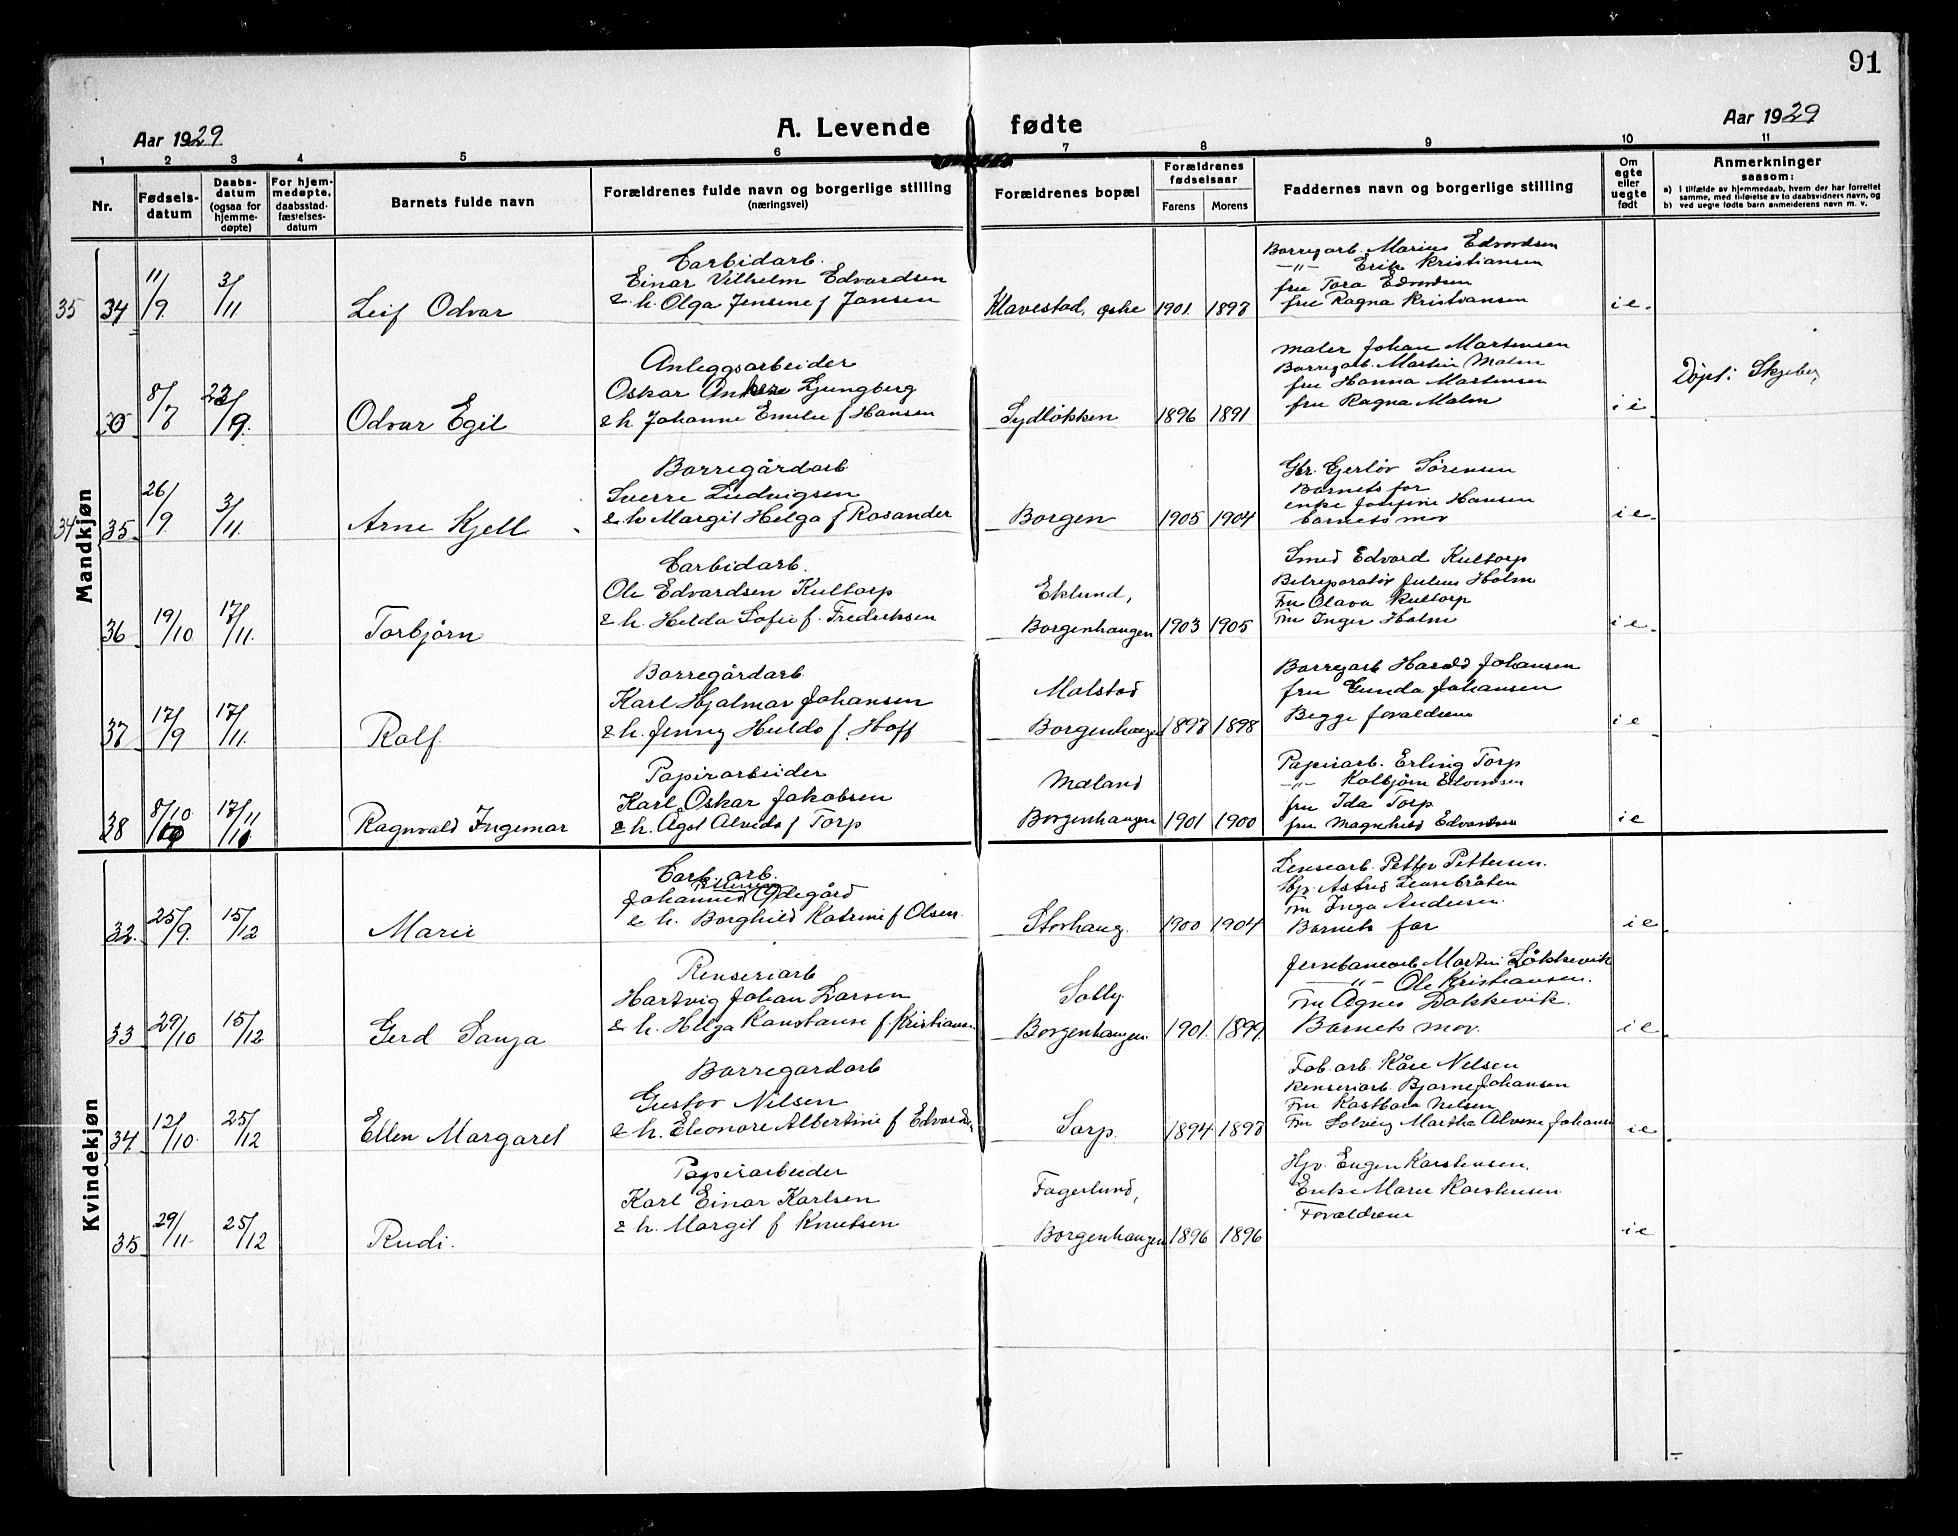 91
Aar 1929
A. Levende fødte
Aar 1929
1 2 3 4 5 6 7 8 9 10 11
Nr.
Fødsels-
datum
Daabs-
datum
(ogsaa for
hjemme-
døpte)
For hjem-
medøpte,
daabsstad-
fæstelses-
datum
Barnets fulde navn
Forældrenes fulde navn og borgerlige stilling
(næringsvei)
Forældrenes bopæl
Forældrenes
fødselsaar
Farens Morens
Faddernes navn og borgerlige stilling
Om
egte
eller
uegte
født
Anmerkninger
saasom:
a) i tilfælde av hjemmedaab, hvem der har forrettet
samme, med tilføielse av to daabsvidners navn, og
b) ved uegte fødte barn anmelderens navn m. v.
Mandkjøn
35 34 11/9 3/11
Leif Odvar
Carbidarb.
Einar Vilhelm Edvardsen
& h. Olga Jensine f Jansen
Klavestad, østre 1901. 1897
Borregarb. Marius Edvardsen
—"— Erik Kristiansen
fru Tora Edvardsen
fru Ragna Kristiansen
i e.
8/7 22/9.
Odvar Egil
Anleggsarbeider
Oskar Ljungberg
& h Johanne Emilie f Hansen
Sydløkken 1896 1891
maler Johan Martensen
Borregarb. Martin Malm
fru Hanna Martensen
fru Ragna Malm
i e
Døpt i Skjeberg
34 35 26/9 3/11.
Arne Kjell
Borregårdarb.
Sverre Ludvigsen
& h Margit Helga f Rosander
Borgen 1905 1904
Gbr. Gerløv Sørensen
Barnets far
enke Josefine Hansen
barnets mor
i e.
36 19/10 17/11.
Torbjørn
Carbidarb.
Ole Edvardsen Kultorp
& h. Helda Sofie f. Fredriksen
Eklund,
Borgenhaugen 1903 1905
Smed Edvard Kultorp
Bilreparatør Julius Holm
Fru Olava Kultorp
Fru Inger Holm
i e.
37 17/9 17/11.
Rolf.
Borregårdarb.
Karl Hjalmar Johansen
& h. Jenny Hulda f. Hoff
Malstad
Borgenhaugen 1897 1898
Borregarb Harald Johansen
fru Gunda Johansen
Begge foraldrene
i e
38 8/10 17/11
Ragnvald Ingemar
Papirarbeider
Karl Oskar Jakobsen
& h. Agot Alvida f Torp
Mæland
Borgenhaugen 1901 1900
Papirarb. Erling Torp
—"— Kolbjørn Edvardsen
fru Ida Torp
fru Magnhild Edvardsen
i e
Kvindekjøn
32. 25/9. 15/12
Marie
Carb. arb.
Johannes Pettersen Ødegård
& h. Borghild Katrine f Olsen.
Storhaug. 1900 1904
Lensearb. Petter Pettersen.
Hp. Astrid Lensebråten
Fru Inga Andersen.
Barnets far
i e
33 29/10 15/12
Gerd Sanja
Renseriarb
Hartvig Johan Larsen
& h. Helga Konstanse f. Kristians
Solly
Borgenhaugen. 1901. 1899.
Jernbanearb Martin Løkkevik
—"— Ole Kristiansen.
Fru Agnes Løkkevik.
Barnets mor.
i e
34 12/10. 25/12
Ellen Margaret
Borregardarb
Gustav Nilsen
& h. Eleonore Albertine f Edvards
Sarp. 1894 1897
Fab. arb. Kåre Nilsen
Renseriarb. Bjarne Johansen
Fru Kastbara Nilsen
Fru Solveig Martha Alvine Johans
i e
35 29/11. 25/12
Rudi.
Papirarbeider
Karl Einar Karlsen
& h. Margit f Knutsen
Fagerlund,
Borgenhaugen 1896 1896
Hjv. Eugen Karstensen.
Enke Marie Karstensen.
Foraldrene
i e